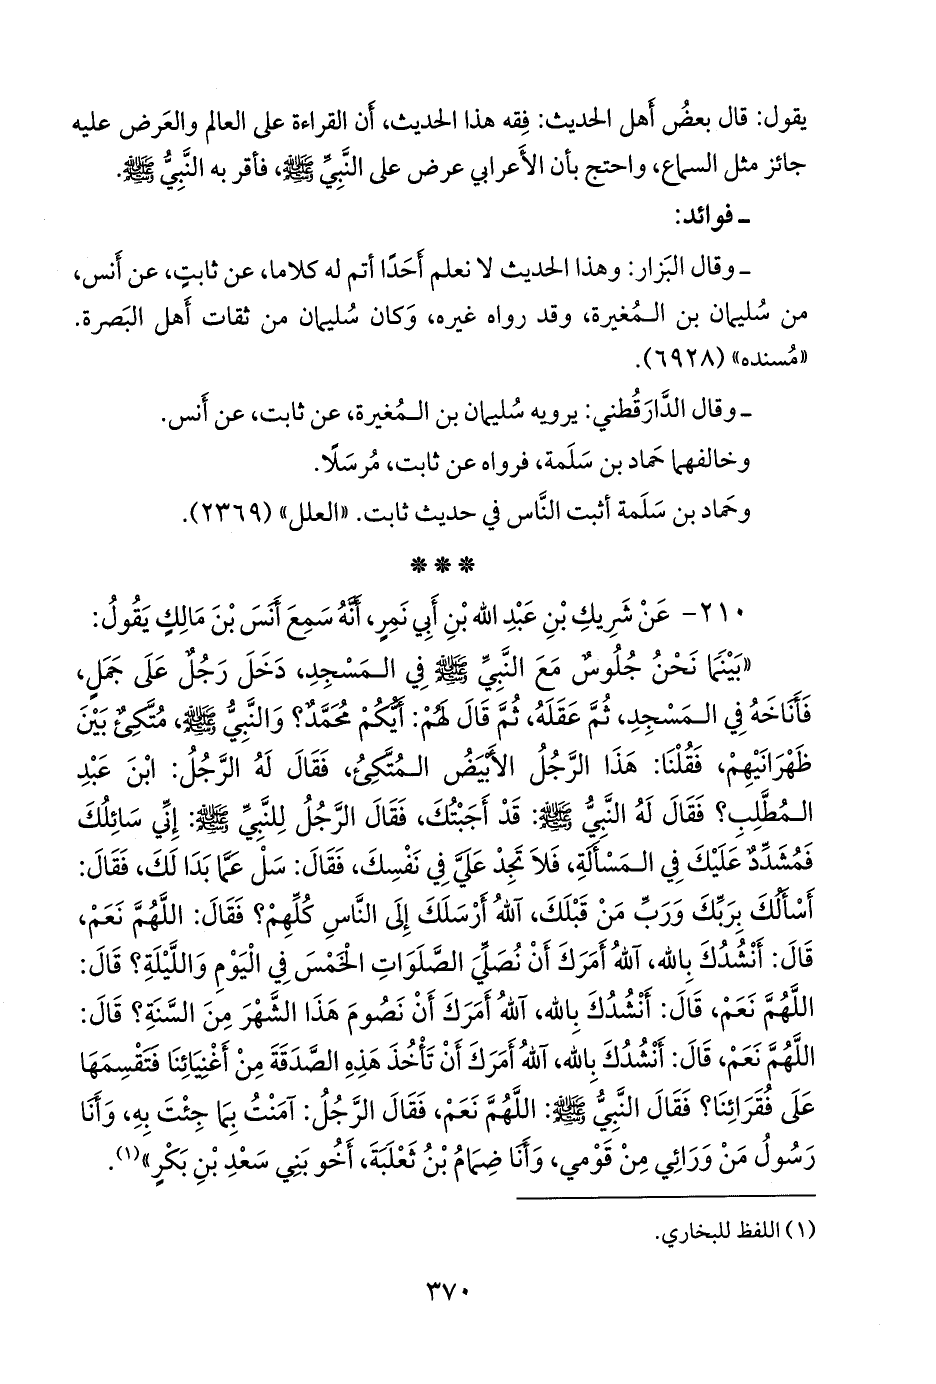 يقول: قال بعضُ أَهل الحديث: فِقه هذا الحديث، أَن القراءة على العالم والعَرض عليه
جائز مثل السماع، واحتج بأن الأَعرابي عرض على النَّبيِّ ﷺ، فأقر به النَّبيُّ ﷺ.
ـ فوائد:
ـ وقال البَزار: وهذا الحديث لا نعلم أَحَدًا أتم له كلاما، عن ثابتٍ، عن أَنس،
من سُليمان بن الـمُغيرة، وقد رواه غيره، وَكان سُليمان من ثقات أَهل البَصرة.
«مُسنده» (٦٩٢٨).
ـ وقال الدَّارَقُطني: يرويه سُليمان بن الـمُغيرة، عن ثابت، عن أَنس.
وخالفهما حَماد بن سَلَمة، فرواه عن ثابت، مُرسَلًا.
وحَماد بن سَلَمة أثبت النَّاس في حديث ثابت. «العلل» (٢٣٦٩).
* * *
٢١٠- عَنْ شَرِيكِ بْنِ عَبْدِ الله بْنِ أَبِي نَمِرٍ، أَنَّهُ سَمِعَ أَنَسَ بْنَ مَالِكٍ يَقُولُ:
«بَيْنَمَا نَحْنُ جُلُوسٌ مَعَ النَّبِيِّ ﷺ فِي الـمَسْجِدِ، دَخَلَ رَجُلٌ عَلَى جَمَلٍ،
فَأَنَاخَهُ فِي الـمَسْجِدِ، ثُمَّ عَقَلَهُ، ثُمَّ قَالَ لَهُمْ: أَيُّكُمْ مُحَمَّدٌ؟ وَالنَّبِيُّ ﷺ، مُتَّكِئٌ بَيْنَ
ظَهْرَانَيْهِمْ، فَقُلْنَا: هَذَا الرَّجُلُ الأَبْيَضُ الـمُتَّكِئُ، فَقَالَ لَهُ الرَّجُلُ: ابْنَ عَبْدِ
الـمُطَّلِبِ؟ فَقَالَ لَهُ النَّبِيُّ ﷺ: قَدْ أَجَبْتُكَ، فَقَالَ الرَّجُلُ لِلنَّبِيِّ ﷺ: إِنِّي سَائِلُكَ
فَمُشَدِّدٌ عَلَيْكَ فِي الـمَسْأَلَةِ، فَلاَ تَجِدْ عَلَيَّ فِي نَفْسِكَ، فَقَالَ: سَلْ عَمَّا بَدَا لَكَ، فَقَالَ:
أَسْأَلُكَ بِرَبِّكَ وَرَبِّ مَنْ قَبْلَكَ، آللهُ أَرْسَلَكَ إِلَى النَّاسِ كُلِّهِمْ؟ فَقَالَ: اللَّهُمَّ نَعَمْ،
قَالَ: أَنْشُدُكَ بِالله، آللهُ أَمَرَكَ أَنْ نُصَلِّيَ الصَّلَوَاتِ الْخَمْسَ فِي الْيَوْمِ وَاللَّيْلَةِ؟ قَالَ:
اللَّهُمَّ نَعَمْ، قَالَ: أَنْشُدُكَ بِالله، آللهُ أَمَرَكَ أَنْ نَصُومَ هَذَا الشَّهْرَ مِنَ السَّنَةِ؟ قَالَ:
اللَّهُمَّ نَعَمْ، قَالَ: أَنْشُدُكَ بِالله، آللهُ أَمَرَكَ أَنْ تَأْخُذَ هَذِهِ الصَّدَقَةَ مِنْ أَغْنِيَائِنَا فَتَقْسِمَهَا
عَلَى فُقَرَائِنَا؟ فَقَالَ النَّبِيُّ ﷺ: اللَّهُمَّ نَعَمْ، فَقَالَ الرَّجُلُ: آمَنْتُ بِمَا جِئْتَ بِهِ، وَأَنَا
رَسُولُ مَنْ وَرَائِي مِنْ قَوْمِي، وَأَنَا ضِمَامُ بْنُ ثَعْلَبَةَ، أَخُو بَنِي سَعْدِ بْنِ بَكْرٍ»(١).
(١) اللفظ للبخاري.
٣٧٠